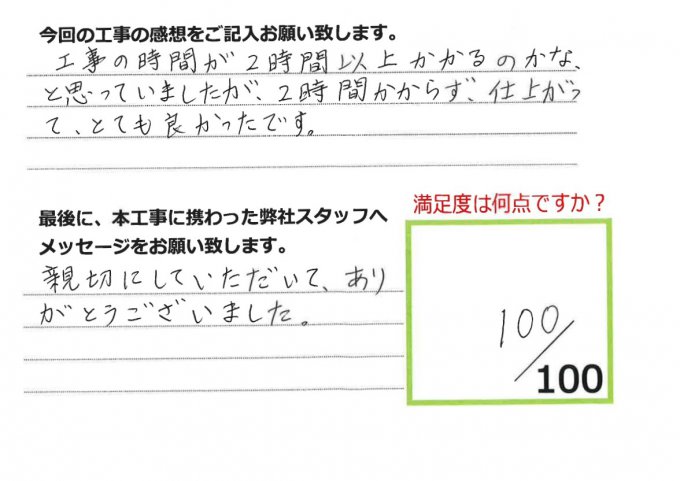 今回の工事の感想をご記入お願い致します。
工事の時間が2時間以上かかるのかな、
と思っていましたが、2時間かからず、仕上がっ
て、とても良かったです。
最後に、本工事に携わった弊社スタッフへ
メッセージをお願い致します。
親切にしていただいて、あり
がとうございました。
満足度は何点ですか？
100/100